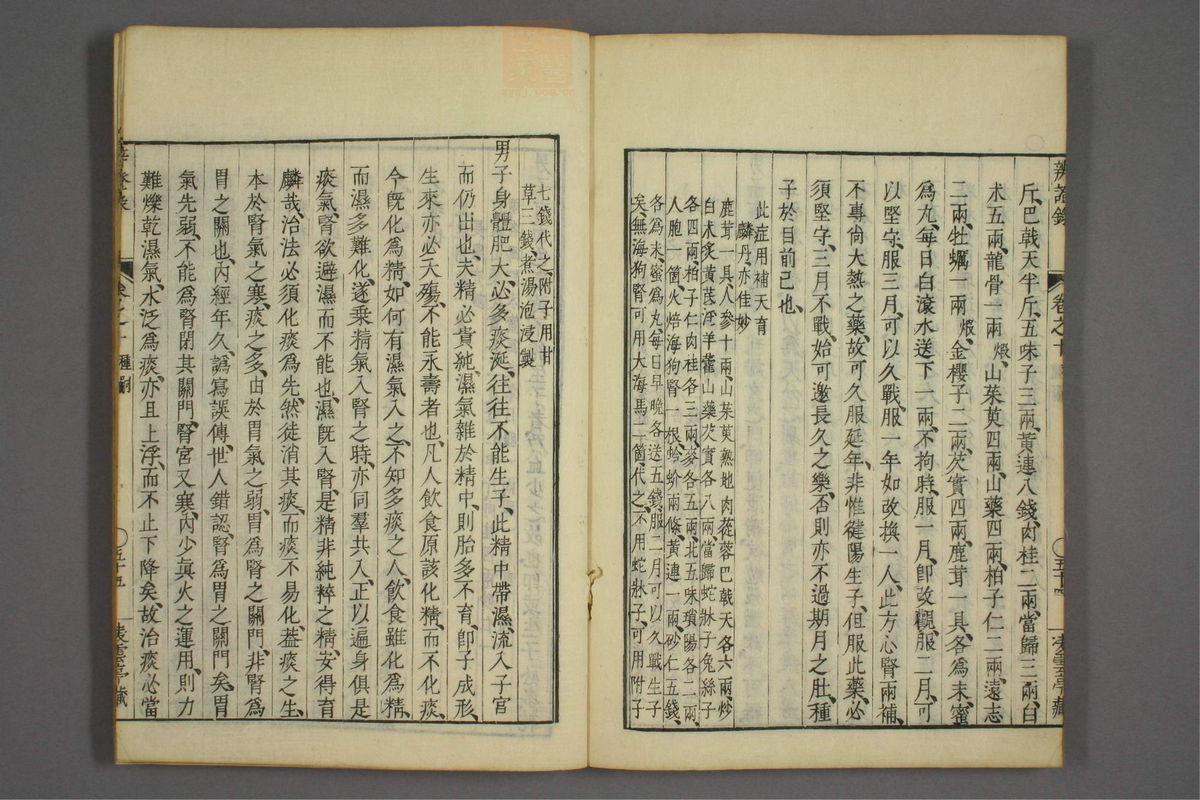 辨證錄 卷之十 五十四 文奎堂藏
斤、巴戟天半斤、五味子三兩、黃連八錢、肉桂二兩、當歸三兩、白
术五兩、龍骨一兩煆、山茱萸四兩、山藥四兩、柏子仁二兩、遠志
二兩、牡蠣一兩煆、金櫻子二兩、芡實四兩、鹿茸一具、各為末、蜜
為丸、每日白滾水送下一兩、不拘時、服一月、即改觀、服二月、可
以堅守、服三月、可以久戰、服一年、如改換一人、此方心腎兩補、
不專尚大熱之藥、故可久服延年、非惟健陽生子、但服此藥、必
須堅守、三月不戰、始可邀長久之樂、否則亦不過期月之壯、種
子於目前已也、
此症用補天育
麟丹、亦佳妙
鹿茸一具、人參十兩、山茱萸熟地肉蓯蓉巴戟天各六兩、炒
白术炙黃芪淫羊藿山藥芡實各八兩、當歸蛇牀子兔絲子
各四兩、柏子仁肉桂各三兩、麥冬五兩、北五味瑣陽各二兩、
人胞一箇、火焙海狗腎一根、蛤蚧兩條、黃連一兩、砂仁五錢、
各為末、蜜為丸、每日早晚各送五錢、服二月可以久戰生子
矣、無海狗腎可用大海馬二箇、代之、不用蛇牀子、可用附子
七錢代之、附子用甘
草三錢、煮湯泡浸製
男子身體肥大、必多痰涎、往往不能生子、此精中帶濕、流入子宮
而仍出也、夫精必貴純、濕氣雜於精中、則胎多不育、即子成形、
生來亦必夭殤、不能永壽者也、凡人飲食原該化精、而不化痰、
今既化為精、如何有濕氣入之、不知多痰之人、飲食雖化為精、
而濕多難化、遂乘精氣入腎之時、亦同羣共入、正以遍身俱是
痰氣、腎欲避濕而不能也、濕既入腎、是精非純粹之精、安得育
麟哉、治法必須化痰為先、然徒消其痰、而痰不易化、蓋痰之生、
本於腎氣之寒、痰之多、由於胃氣之弱、胃為腎之關門、非腎為
胃之關也、內經年久、譌寫誤傳、世人錯認、腎為胃之關門矣、胃
氣先弱、不能為腎閉其關門、腎宮又寒、內少真火之運用、則力
難爍乾濕氣、水泛為痰、亦且上浮、而不止下降矣、故治痰必當
卷之十 種嗣 五十五